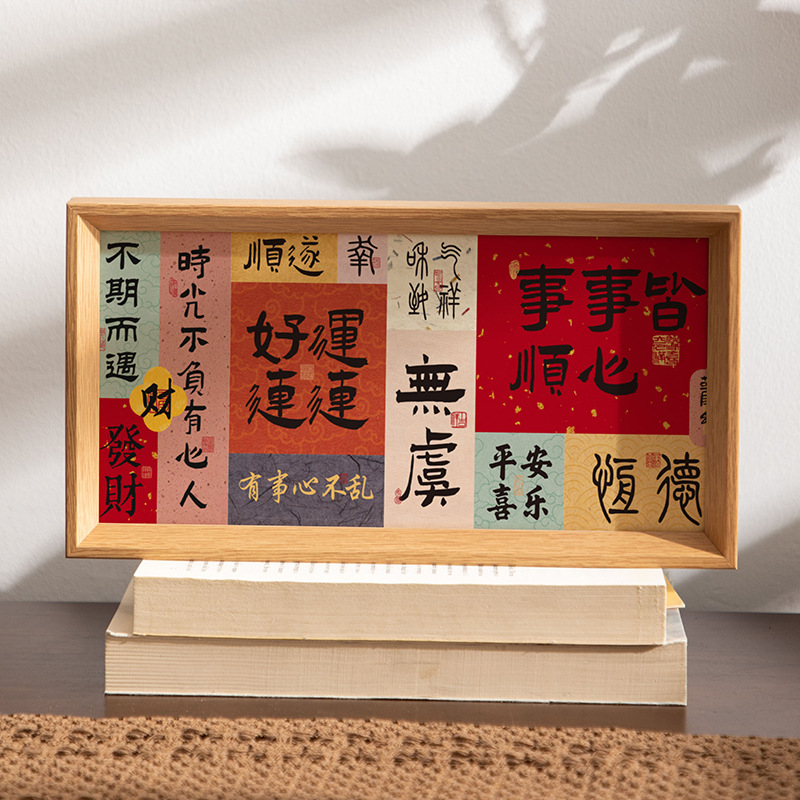 不期而遇
財
發財
時光不負有心人
順遂
好運
連連
有事心不乱
和气
致祥
無虞
事事皆
順心
平安
喜乐
恆德